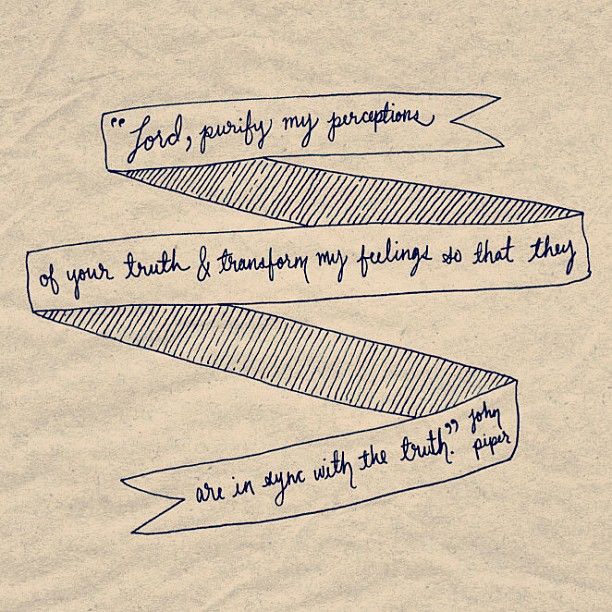 "Lord, purify my perceptions
of your truth & transform my feelings so that they
are in sync with the truth." John
Piper